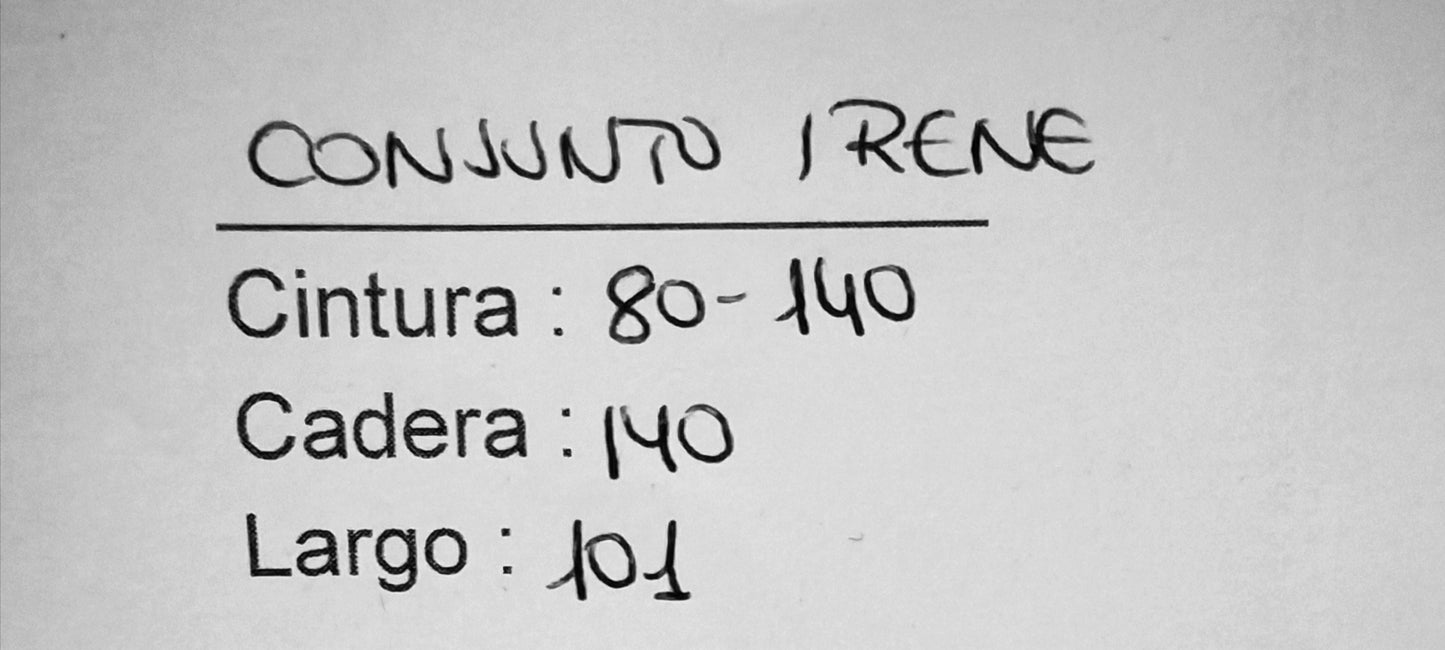 CONJUNTO IRENE
Cintura : 80-140
Cadera : 140
Largo : 101